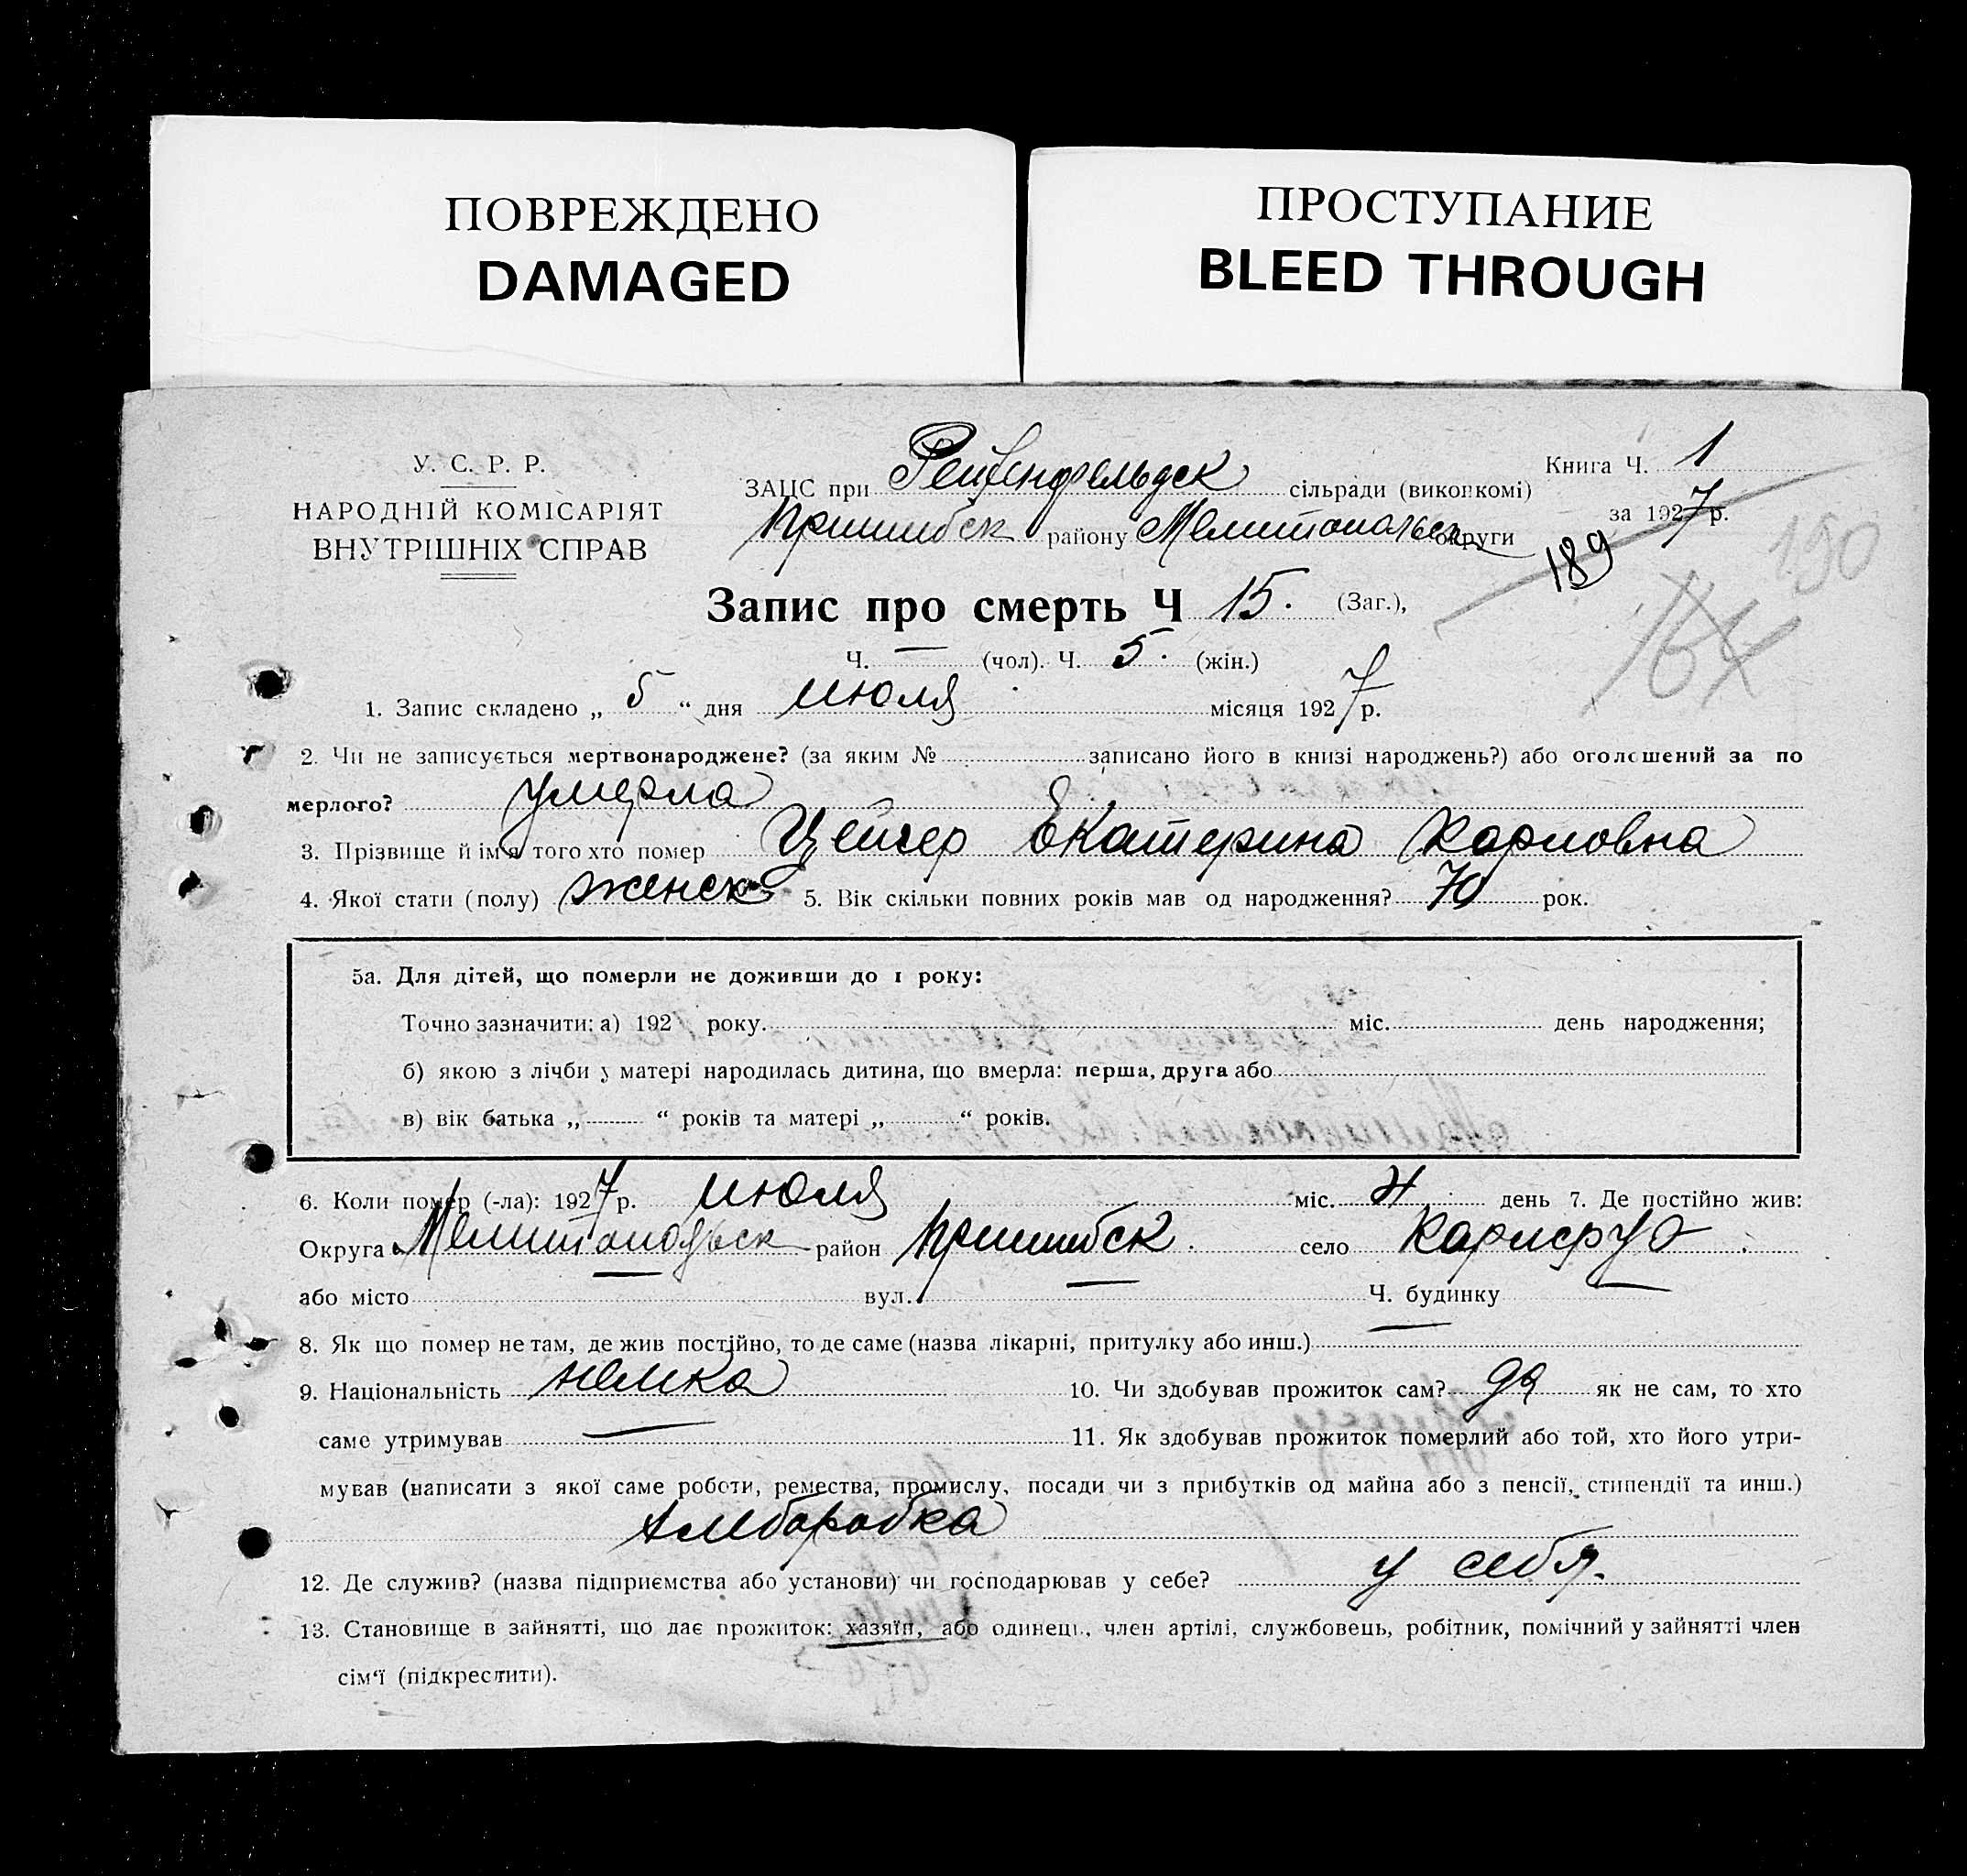 ПОВРЕЖДЕНО
DAMAGED
ПРОСТУПАНИЕ
BLEED THROUGH
У. С. Р. Р.
НАРОДНІЙ КОМІСАРІЯТ
ВНУТРІШНІХ СПРАВ
ЗАЦС при Рейхенфельдск сільради (виконкомі)
Пришибск району Мелитопольск округи
Книга Ч. 1
за 1927 р.
189
190
164
Запис про смерть Ч 15. (Заг.),
Ч. — (чол). Ч. 5. (жін.)
1. Запис складено „ 5 “ дня июля місяця 1927 р.
2. Чи не записується мертвонароджене? (за яким № записано його в книзі народжень?) або оголошений за по
мерлого? умерла
3. Прізвище й ім'я того хто помер Цейгер Екатерина Карловна
4. Якої стати (полу) женск 5. Вік скільки повних років мав од народження? 70 рок.
5а. Для дітей, що померли не доживши до 1 року:
Точно зазначити: а) 192 року. міс. день народження;
б) якою з лічби у матері народилась дитина, що вмерла: перша, друга або
в) вік батька „ “ років та матері „ “ років.
6. Коли помер (-ла): 1927 р. июля міс. 4 день 7. Де постійно жив:
Округа Мелитопольск район Пришибск. село Карлсруэ.
або місто — вул. — Ч. будинку —
8. Як що помер не там, де жив постійно, то де саме (назва лікарні, притулку або инш.) —
9. Національність немка 10. Чи здобував прожиток сам? да як не сам, то хто
саме утримував — 11. Як здобував прожиток померлий або той, хто його утри-
мував (написати з якої саме роботи, ремества, промислу, посади чи з прибутків од майна або з пенсії, стипендії та инш.)
хлеборобка
12. Де служив? (назва підприємства або установи) чи господарював у себе? у себя.
13. Становище в зайнятті, що дає прожиток: хазяїн, або одинець, член артілі, службовець, робітник, помічний у зайнятті член
сім'ї (підкреслити).